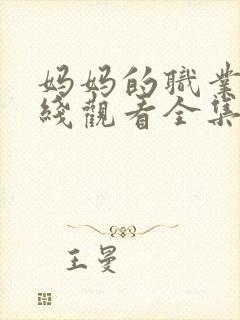 妈妈的職業
綫觀看全集
王曼